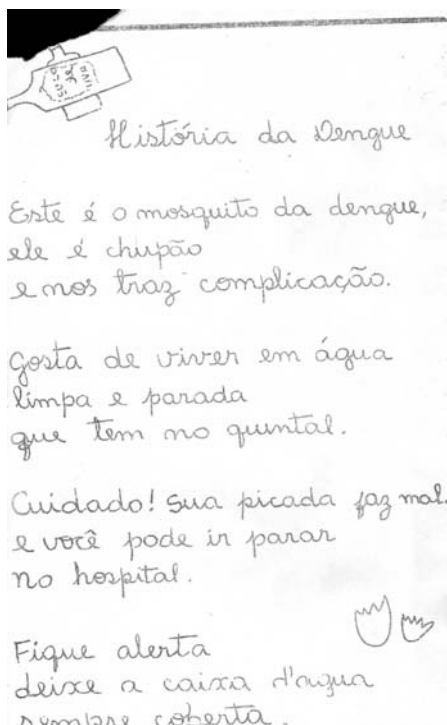 História da Dengue
Este é o mosquito da dengue,
ele é chupão
e nos traz complicação.
Gosta de viver em água
limpa e parada
que tem no quintal.
Cuidado! Sua picada faz mal.
e você pode ir parar
no hospital.
Fique alerta
deixe a caixa d'água
sempre coberta.